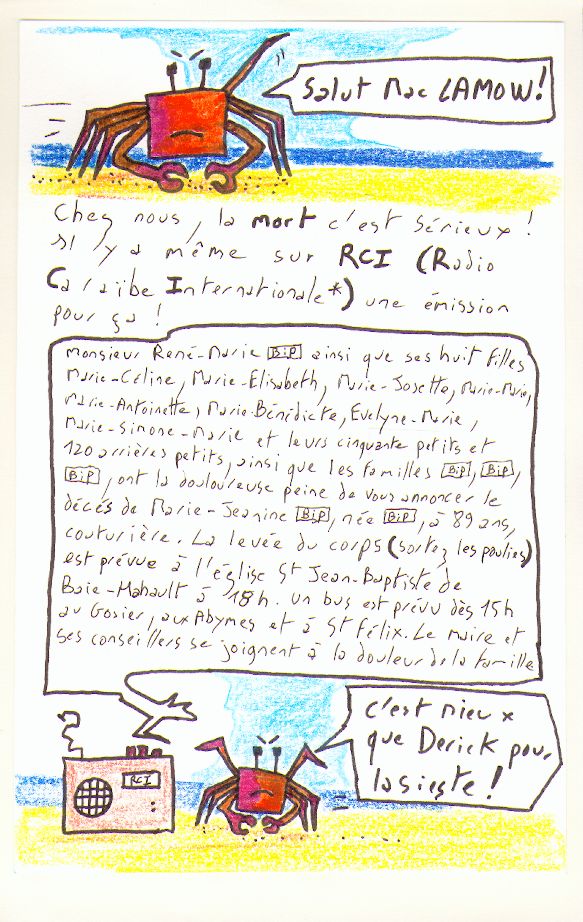 Salut Mac LAMOW!
Chez nous, la mort c'est sérieux !
Il y a même sur RCI (Radio
Caraïbe Internationale*) une émission
pour ça !
Monsieur René-Marie BiP ainsi que ses huit filles
Marie-Céline, Marie-Elisabeth, Marie-Josette, Marie-Marie,
Marie-Antoinette, Marie-Bénédicte, Evelyne-Marie,
Marie-Simone-Marie et leurs cinquante petits et
120 arrières petits, ainsi que les familles BiP, BiP,
BiP, ont la douloureuse peine de vous annoncer le
décés de Marie-Jeanine BiP, née BiP, à 89 ans,
couturière. La levée du corps (sortez les poulies)
est prévue à l'église St Jean-Baptiste de
Baie-Mahault à 18h. Un bus est prévu dès 15h
au Gosier, aux Abymes et à St Félix. Le maire et
ses conseillers se joignent à la douleur de la famille
RCI
c'est mieux
que Derick pour
la sieste !